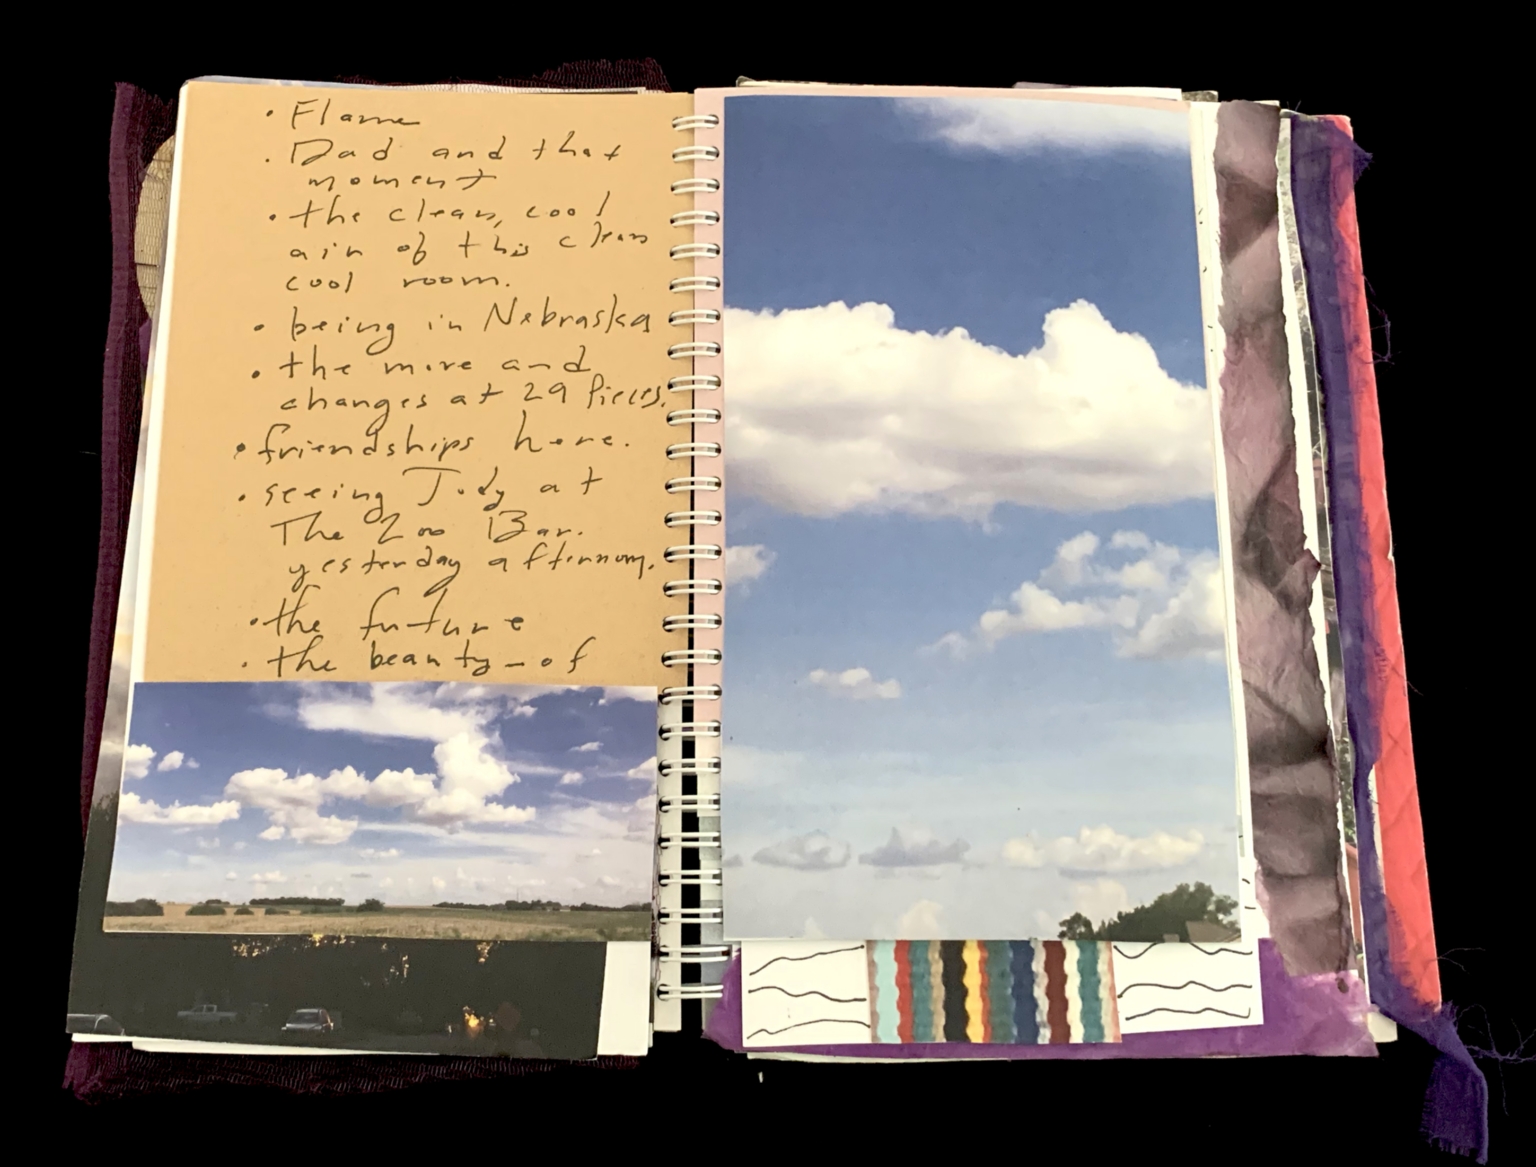 • Flame
• Dad and that
moment
• the clean, cool
air of this clean
cool room.
• being in Nebraska
• the move and
changes at 29 Pieces.
• friendships here.
• seeing Jody at
The Zoo Bar.
yesterday afternoon.
• the future
• the beauty - of